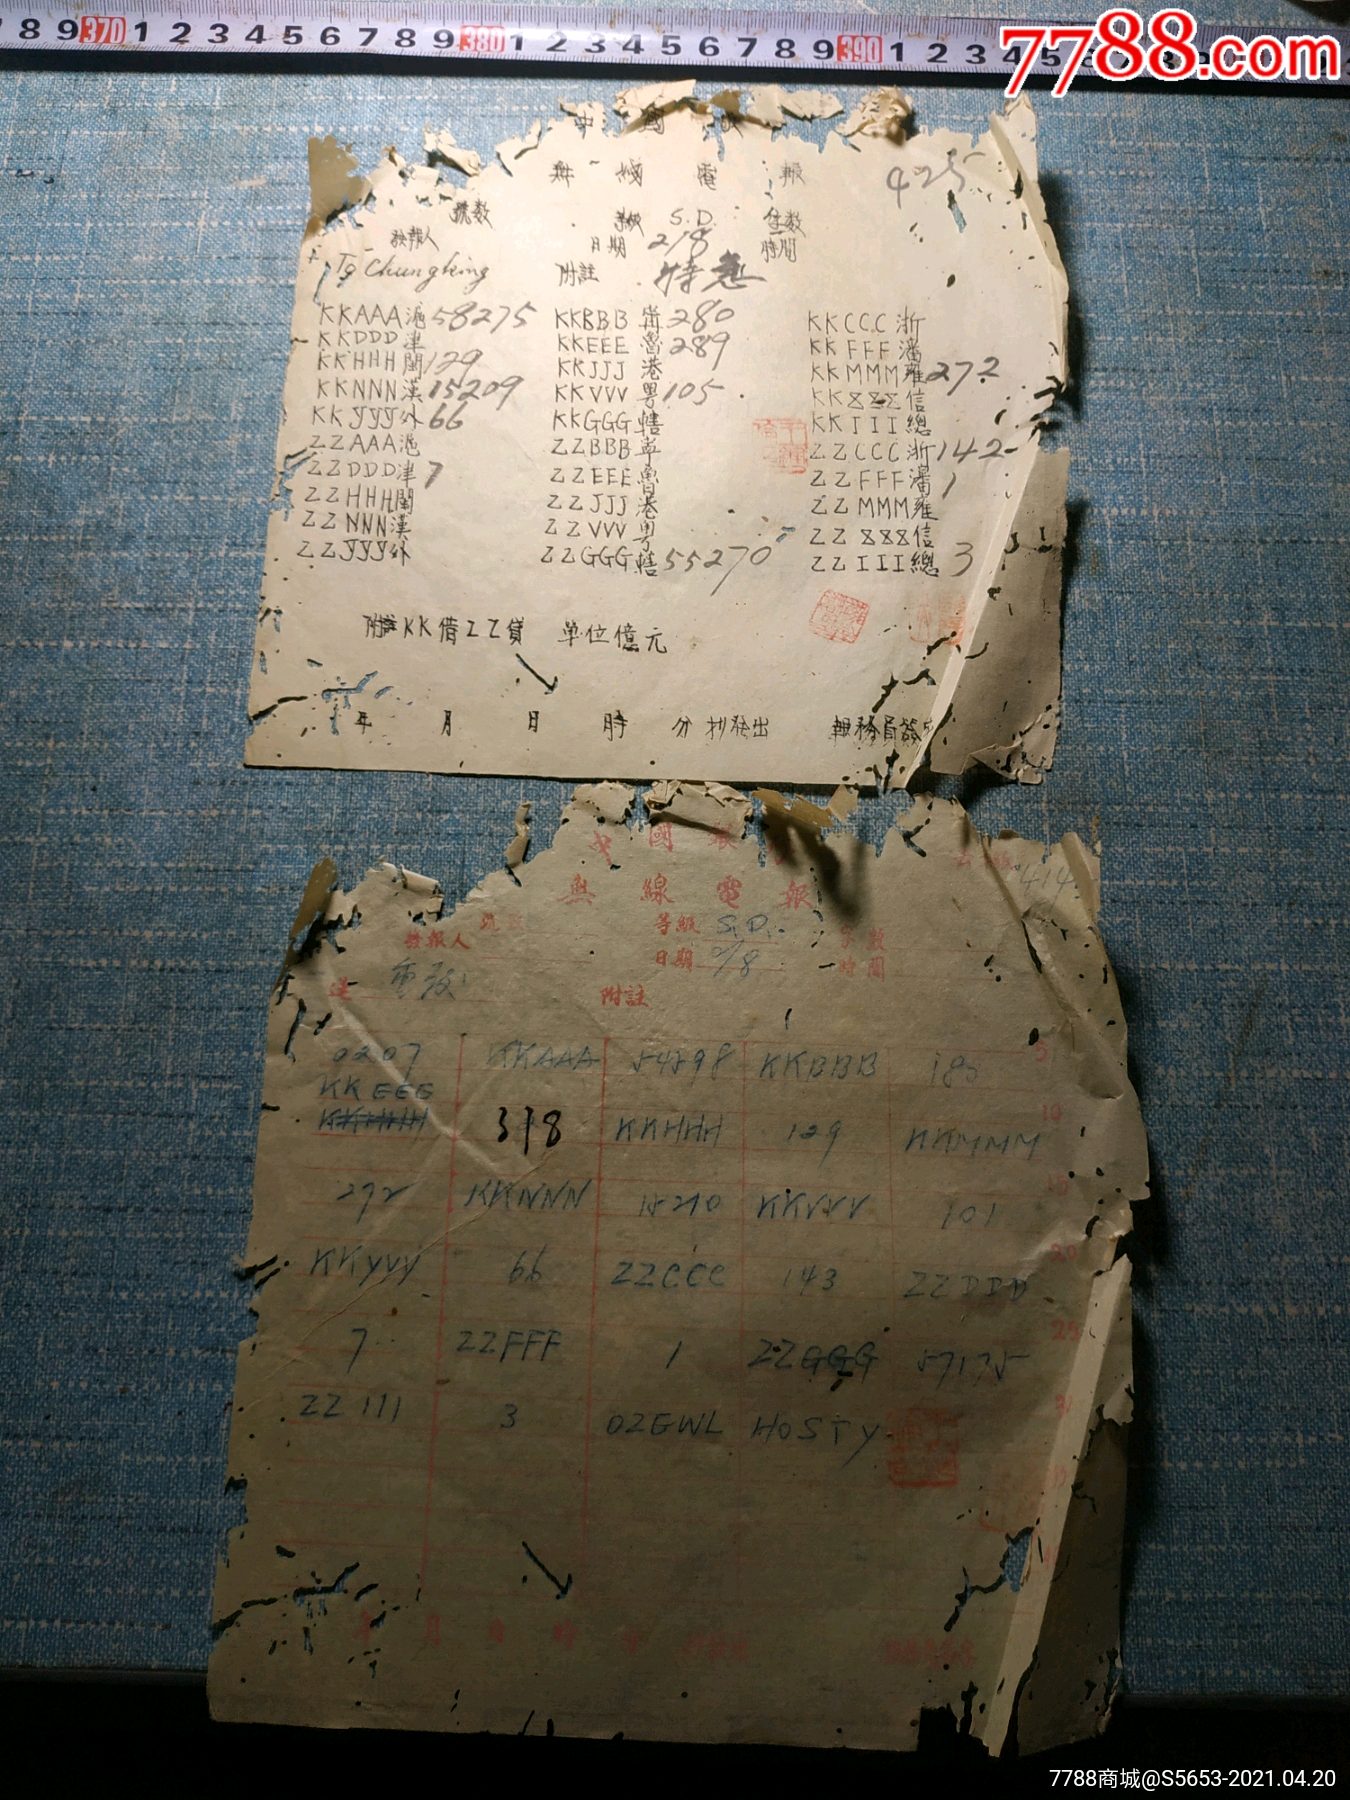 8 9 370 1 2 3 4 5 6 7 8 9 380 1 2 3 4 5 6 7 8 9 390 1 2 3 4 5
7788.com
中國
無線電報
425
號數 等級 S.D. 字數
發報人 日期 2/8 時間
To Chungking 附註 特急
KKAAA滬58275 KKBBB 280 KKCCC浙
KKDDD津 KKEEE魯289 KKFFF瀋
KKHHH閩129 KKJJJ港 KKMMM雍272
KKNNN漢15209 KKVVV粤105 信
KKYYY外66 KKGGG轄 KKIII總
ZZAAA滬 ZZBBB ZZCCC浙142
ZZDDD津7 ZZEEE魯 ZZFFF瀋1
ZZHHH閩 ZZJJJ港 ZZMMM雍
ZZNNN漢 ZZVVV粤 信
ZZYYY外 ZZGGG轄55270 ZZIII總3
附註KK借ZZ貸 單位億元
年 月 日 時 分 抄發出 報務員簽
中國銀
無線電報
414
號 等級 S.D. 字數
發報人 日期 /8 時間
送 重 附註
0207 KKAAA 54598 KKBBB 5
KKEEE
KKHHH 318 KKHHH 129 KKMMM 10
272 KKNNN 15210 KKVVV 101 15
KKYYY 66 ZZCCC 143 ZZDDD 20
7 ZZFFF 1 ZZGGG 57175 25
ZZ111 3 OZEWL HOSTY
年 月 日 時
7788商城@S5653-2021.04.20